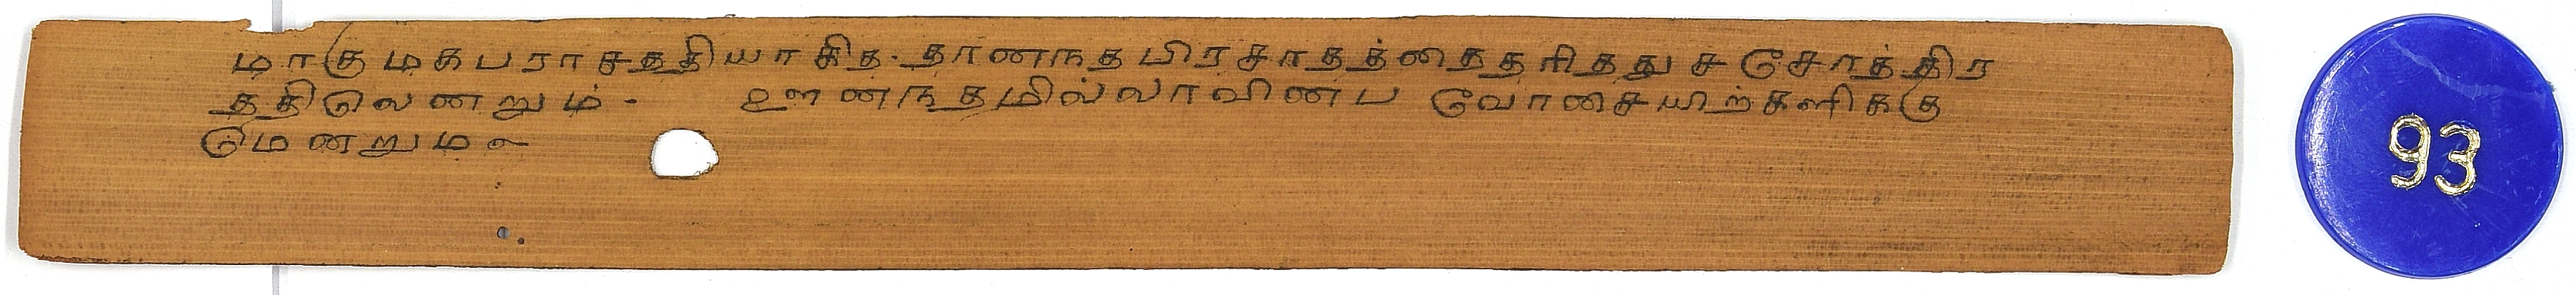 மாகுமகபராசத்தியாகித. தானாநதபிரசாதத்தைதரிதது சசோத்திர
ததிலெனறும் - ஊனநதமில்லாவின்ப வோசையிற்களிககு
மெனறும உ
93